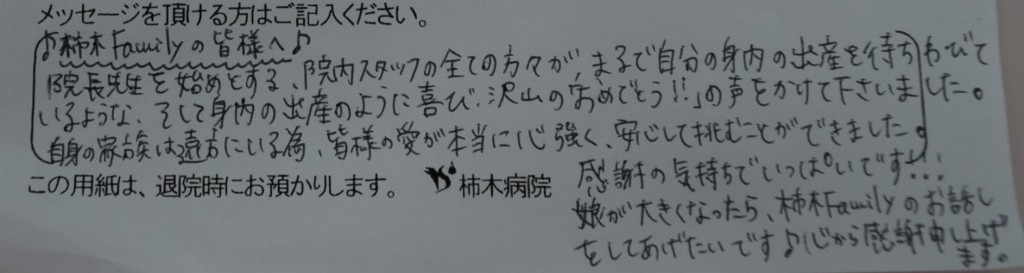 メッセージを頂ける方はご記入ください。
♪柿木Familyの皆様へ♪
院長先生を始めとする、院内スタッフの全ての方々が、まるで自分の身内の出産を待ちわびて
いるような、そして身内の出産のように喜び、沢山の「おめでとう!!」の声をかけて下さいました。
自身の家族は遠方にいる為、皆様の愛が本当に心強く、安心して挑むことができました。
感謝の気持ちでいっぱいです!!
娘が大きくなったら、柿木Familyのお話し
をしてあげたいです♪心から感謝申し上げ
ます。
この用紙は、退院時にお預かりします。 柿木病院